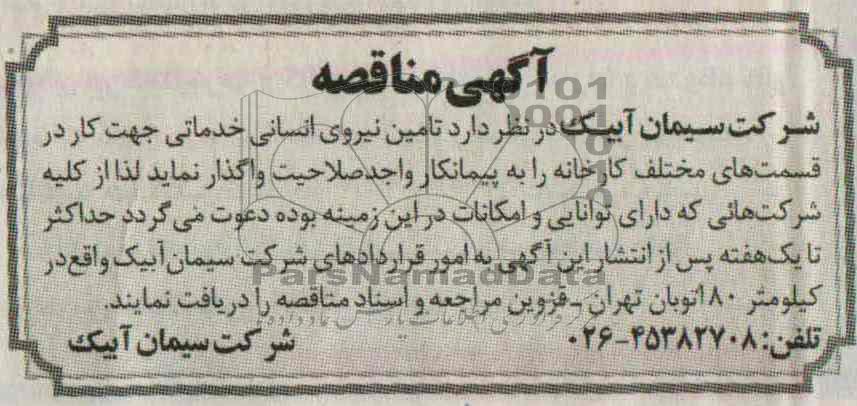 آگهی مناقصه
شرکت سیمان آبیک در نظر دارد تامین نیروی انسانی خدماتی جهت کار در
قسمت‌های مختلف کارخانه را به پیمانکار واجدصلاحیت واگذار نماید لذا از کلیه
شرکت‌هائی که دارای توانایی و امکانات در این زمینه بوده دعوت می گردد حداکثر
تا یک‌هفته پس از انتشار این آگهی به امور قراردادهای شرکت سیمان آبیک واقع در
کیلومتر ۸۰ اتوبان تهران - قزوین مراجعه و اسناد مناقصه را دریافت نمایند.
تلفن: ۴۵۳۸۲۷۰۸-۰۲۶
شرکت سیمان آبیک
ParsNamadData